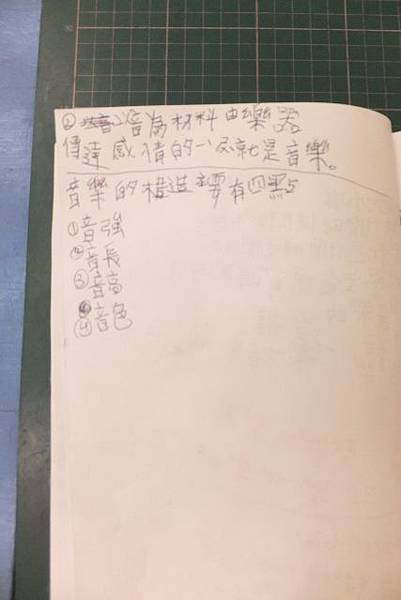 ②音為材料由樂器
傳達感情的一
就是音樂。
音樂的構造主要有四點
①音強
②音長
③音高
④音色